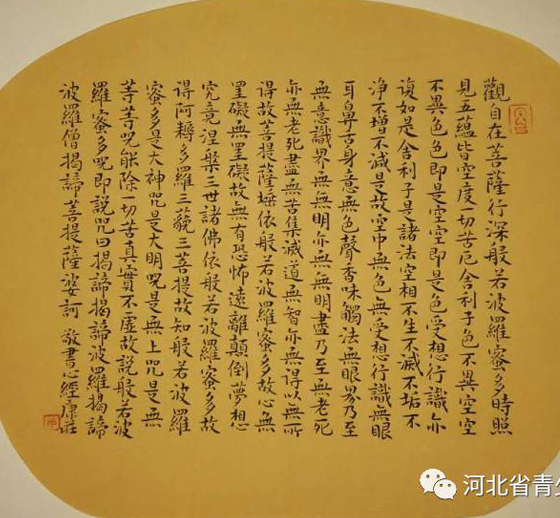 觀自在菩薩行深般若波羅蜜多時照
見五蘊皆空度一切苦厄舍利子色不異空空
不異色色即是空空即是色受想行識亦
復如是舍利子是諸法空相不生不滅不垢不
淨不增不減是故空中無色無受想行識無眼
耳鼻舌身意無色聲香味觸法無眼界乃至
無意識界無無明亦無無明盡乃至無老死
亦無老死盡無苦集滅道無智亦無得以無所
得故菩提薩埵依般若波羅蜜多故心無
罣礙無罣礙故無有恐怖遠離顛倒夢想
究竟涅槃三世諸佛依般若波羅蜜多故
得阿耨多羅三藐三菩提故知般若波羅
蜜多是大神咒是大明咒是無上咒是無
等等咒能除一切苦真實不虛故說般若波
羅蜜多咒即說咒曰揭諦揭諦波羅揭諦
波羅僧揭諦菩提薩婆訶 敬書心經康莊
河北省青